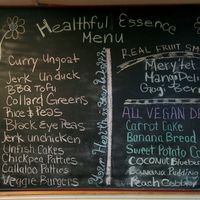 Healthful Essence
Menu
Curry Ungoat
Jerk Unduck
BBQ Tofu
Collard Greens
Rice & Peas
Black Eye Peas
Jerk unchicken
Unfish Cakes
Chickpea Patties
Callaloo Patties
Veggie Burgers
Your Health is Your Wealth
REAL FRUIT SM
Gogi Berr
ALL VEGAN DE
Carrot Cake
Banana Bread
Sweet Potato Co
Coconut Blueber
Banana Pudding
Peach Cobbl